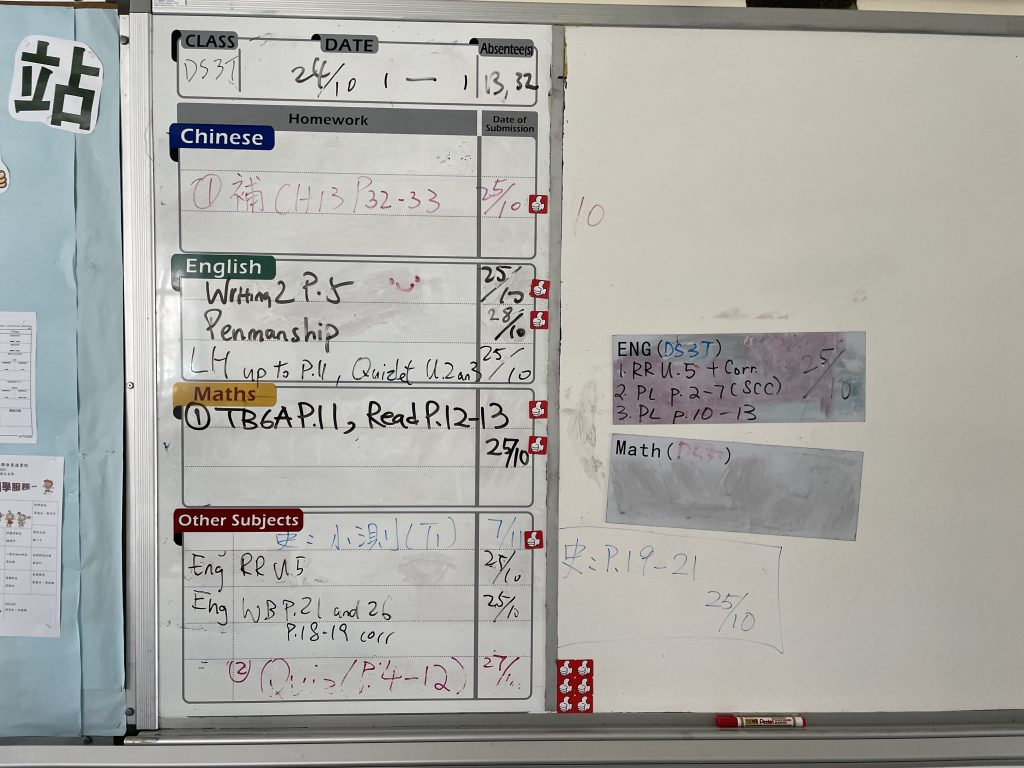 站
CLASS DATE Absentee(s)
DS3T 24/10 1 — 1 13, 32
Homework Date of Submission
Chinese
① 補 CH13 P32-33 25/10
English
Writing 2 P.5 25/10
Penmanship 28/10
LH up to P.11, Quizlet U.2 an3 25/10
Maths
① TB6A P.11, Read P.12-13
25/10
Other Subjects
史: 小測 (T1) 7/11
Eng RR U.5 25/10
Eng WB P.21 and 26 25/10
P.18-19 corr
② Quiz (P.4-12) 27/
10
ENG (DS3T) 25/10
1. RR U.5 + Corr
2. PL P.2-7 (SCC)
3. PL p.10-13
Math (DS3T)
史: P.19-21
25/10
Pentel